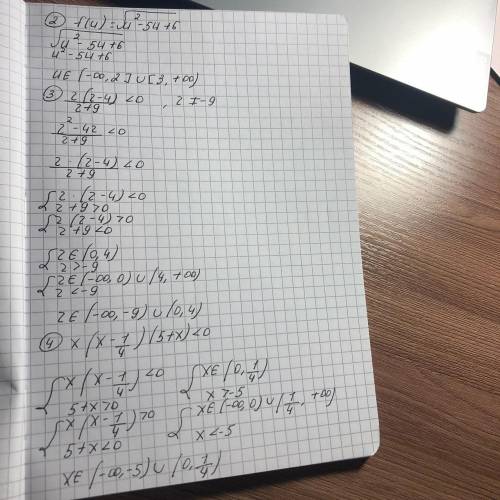 ② f(u) = √u²-5u+6
√u²-5u+6
u²-5u+6
u∈(-∞, 2]∪[3, +∞)
③ z(z-4)/z+9 <0 , z≠-9
z²-4z/z+9 <0
z·(z-4)/z+9 <0
{ z·(z-4)<0
z+9>0
{ z(z-4)>0
z+9<0
{ z∈(0,4)
z>-9
{ z∈(-∞,0)∪(4,+∞)
z<-9
z∈(-∞,-9)∪(0,4)
④ x(x-1/4)(5+x)<0
{ x(x-1/4)<0 { x∈(0,1/4)
5+x>0 x>-5
{ x(x-1/4)>0 { x∈(-∞,0)∪(1/4,+∞)
5+x<0 x<-5
x∈(-∞,-5)∪(0,1/4)